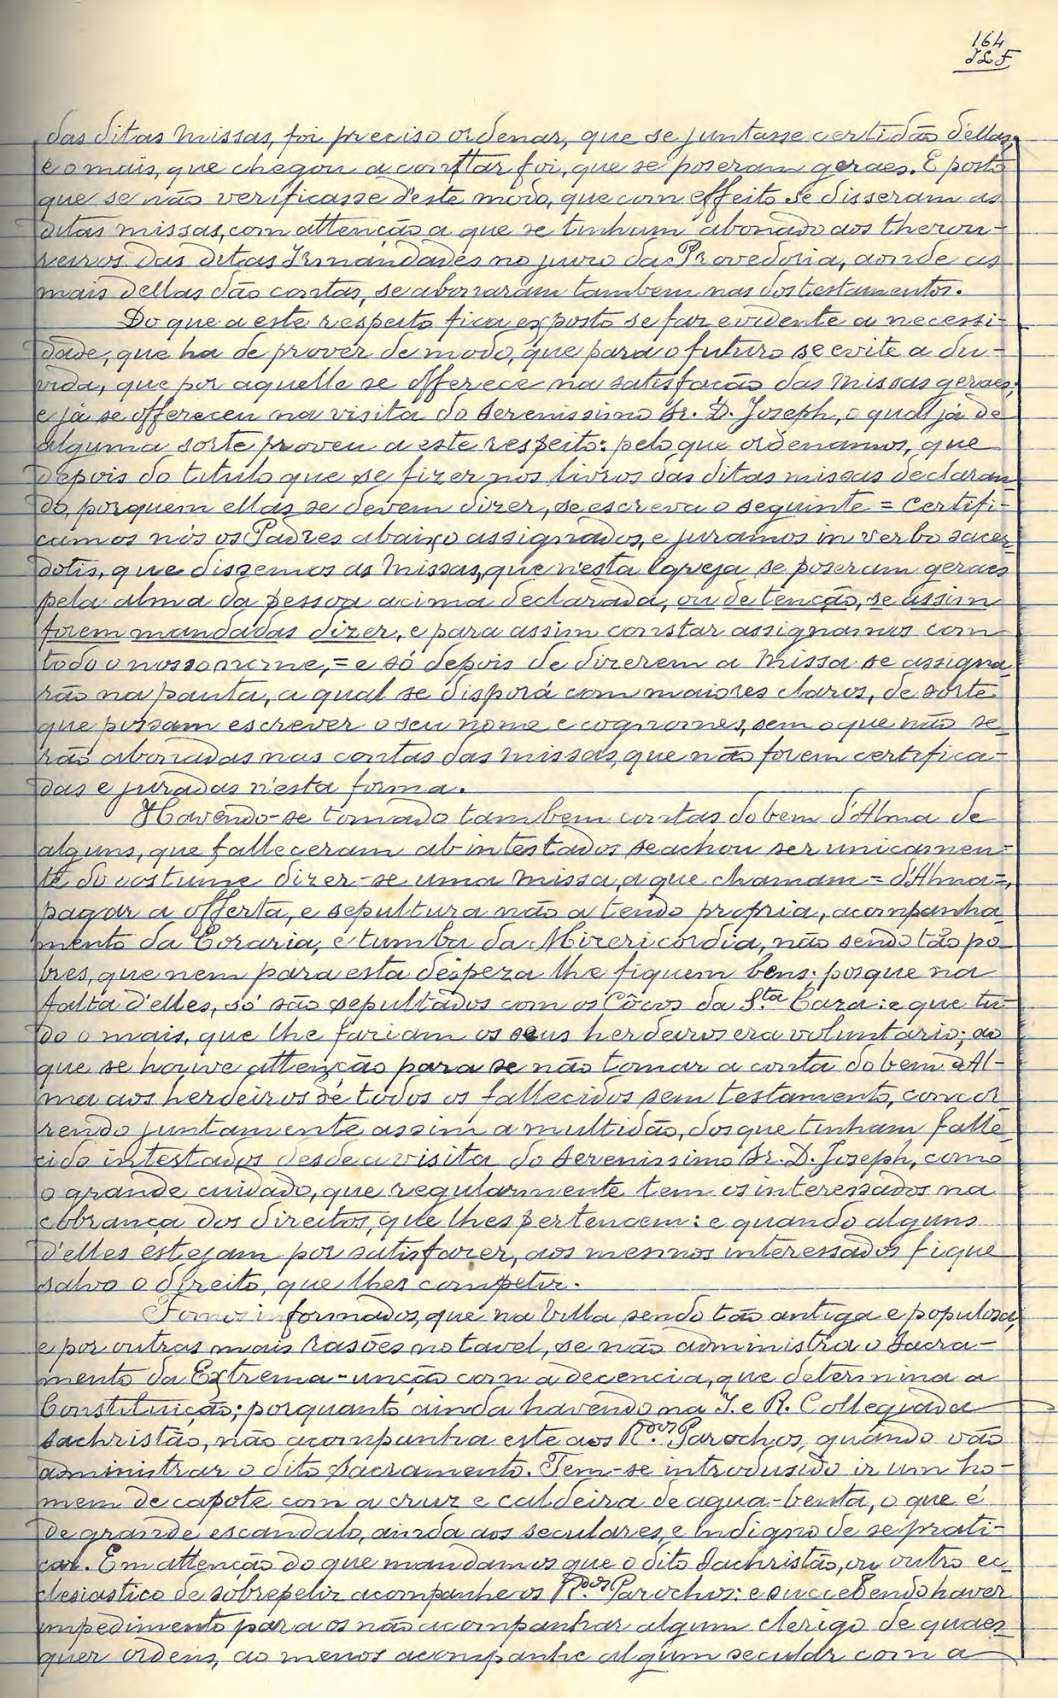 164
JLF
das ditas missas, foi preciso ordenar, que se juntasse certidão d'ellas,
e o mais, que chegou a constar foi, que se poseram geraes. E posto
que se não verificasse d'este modo, que com effeito se disseram as
ditas missas, com attenção a que se tinham abonado aos thesou-
reiros das ditas Irmandades no juiso da Provedoria, aonde as
mais dellas dão contas, se abonaram tambem nas dos testamentos.
Do que a este respeito fica exposto se faz evidente a necessi-
dade, que ha de prover de modo, que para o futuro se evite a du-
vida, que por aquelle se offerece na satisfação das missas geraes,
e já se offereceu na visita do Serenissimo Sr. D. Joseph, o qual já de
alguma sorte proveu a este respeito: pelo que ordenamos, que
depois do titulo que se fizer nos livros das ditas missas declaran-
do, por quem ellas se devem dizer, se escreva o seguinte = Certifi-
camos nós os Padres abaixo assignados, e juramos in verbo sacer-
dotis, que dissemos as Missas, que n'esta Egreja se poseram geraes
pela alma da pessoa acima declarada, ou de tenção, se assim
forem mandadas dizer, e para assim constar assignamos com
todo o nosso nome, = e só depois de dizerem a missa se assigna-
rão na pauta, a qual se disporá com maiores claros, de sorte
que possam escrever o seu nome e cognomes, sem o que não se-
rão abonadas nas contas das missas, que não forem certifica-
das e juradas n'esta forma.
Havendo-se tomado tambem contas do bem d'Alma de
alguns, que falleceram ab intestados se achou ser unicamen-
te do costume dizer-se uma missa, a que chamam = d'Alma =,
pagar a offerta, e sepultura não a tendo propria, acompanha-
mento da Coraria, e tumba da Misericordia, não sendo tão po-
bres, que nem para esta despeza lhe fiquem bens: porque na
falta d'elles, só são sepultados com os Côros da S.ta Caza: e que tu-
do o mais, que lhe fariam os seus herdeiros era voluntario; ao
que se houve attenção para se não tomar a conta do bem d'Al-
ma aos herdeiros de todos os fallecidos sem testamento, concor-
rendo juntamente assim a multidão, dos que tinham falle-
cido intestados desde a visita do Serenissimo Sr. D. Joseph, como
o grande cuidado, que regularmente tem os interessados na
cobrança dos direitos, que lhes pertencem: e quando alguns
d'elles estejam por satisfazer, aos mesmos interessados fique
salvo o direito, que lhes competir.
Fomos informados, que na Villa sendo tão antiga e populosa,
e por outras mais rasões notavel, se não administra o Sacra-
mento da Extrema-unção com a decencia, que determina a
Constituição; porquanto ainda havendo na I. e R. Collegiada
Sachristão, não acompanha este aos R.dos Parochos, quando vão
administrar o dito Sacramento. Tem-se introdusido ir um ho-
mem de capote com a cruz e caldeira de agua-benta, o que é
de grande escandalo, ainda aos seculares, e indigno de se prati-
car. Em attenção do que mandamos que o dito Sachristão, ou outro ec-
clesiastico de sobrepeliz acompanhe os R.dos Parochos: e succedendo haver
impedimento para os não acompanhar algum clerigo de quaes-
quer ordens, ao menos acompanhe algum secular com a